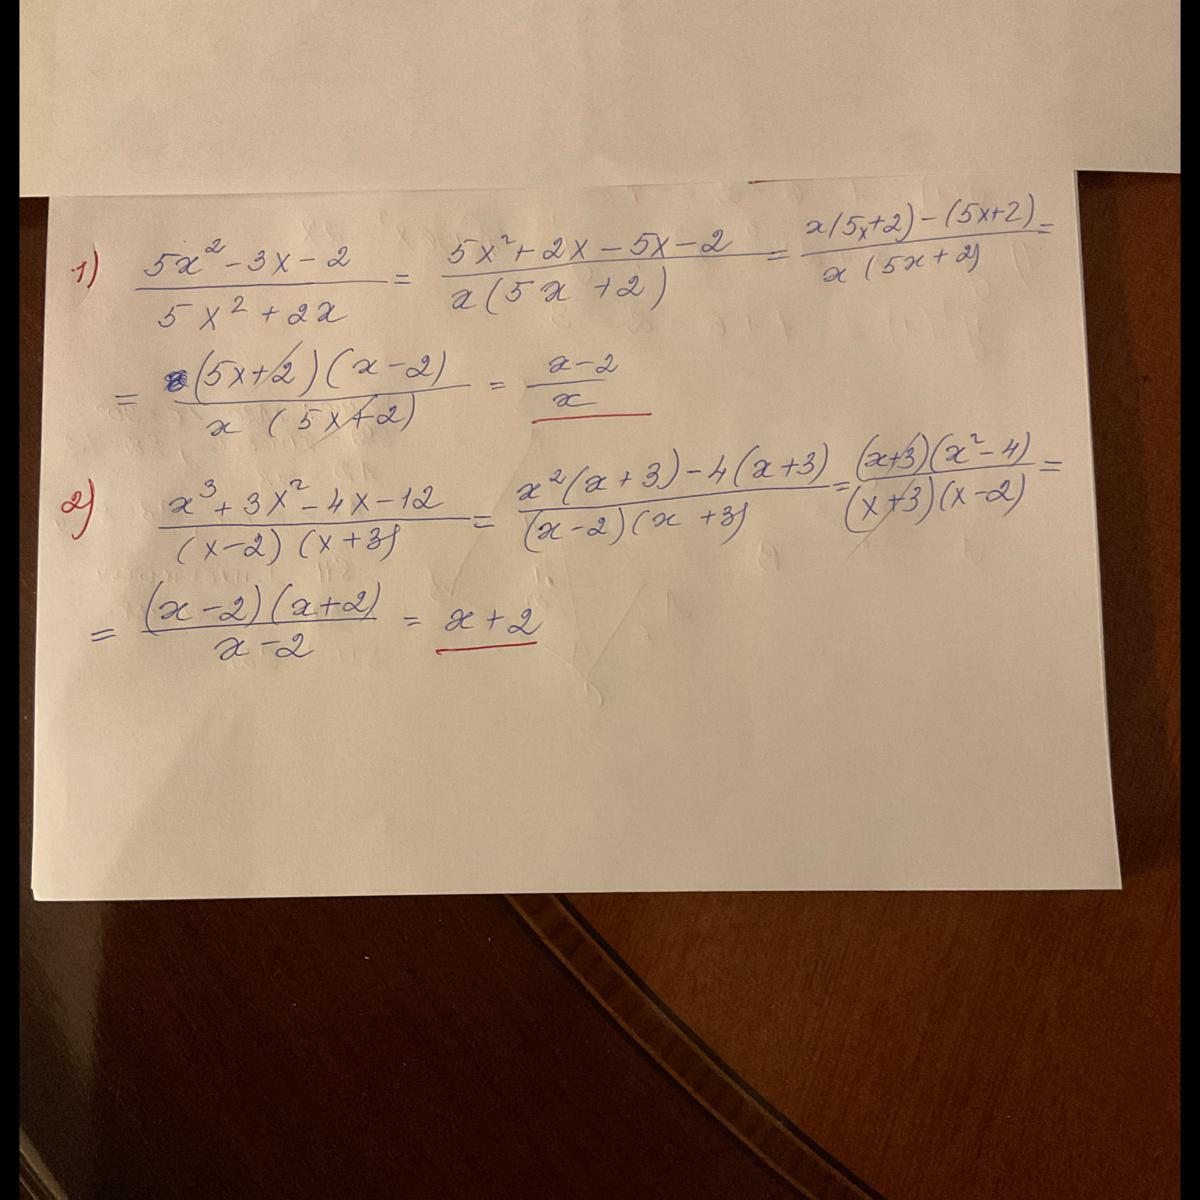 1) (5x² - 3x - 2)/(5x² + 2x) = (5x² + 2x - 5x - 2)/(x(5x + 2)) = (x(5x+2) - (5x+2))/(x(5x+2)) =
= ((5x+2)(x-2))/(x(5x+2)) = (x-2)/x
2) (x³ + 3x² - 4x - 12)/((x-2)(x+3)) = (x²(x+3) - 4(x+3))/((x-2)(x+3)) = ((x+3)(x²-4))/((x+3)(x-2)) =
= ((x-2)(x+2))/(x-2) = x+2